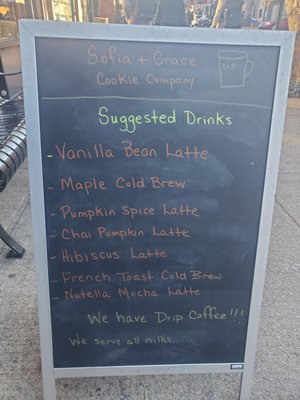 Sofia + Grace
Cookie Company
Suggested Drinks
- Vanilla Bean Latte
- Maple Cold Brew
- Pumpkin Spice Latte
- Chai Pumpkin Latte
- Hibiscus Latte
- French Toast Cold Brew
- Nutella Mocha Latte
We have Drip Coffee!!!
We serve all milks......